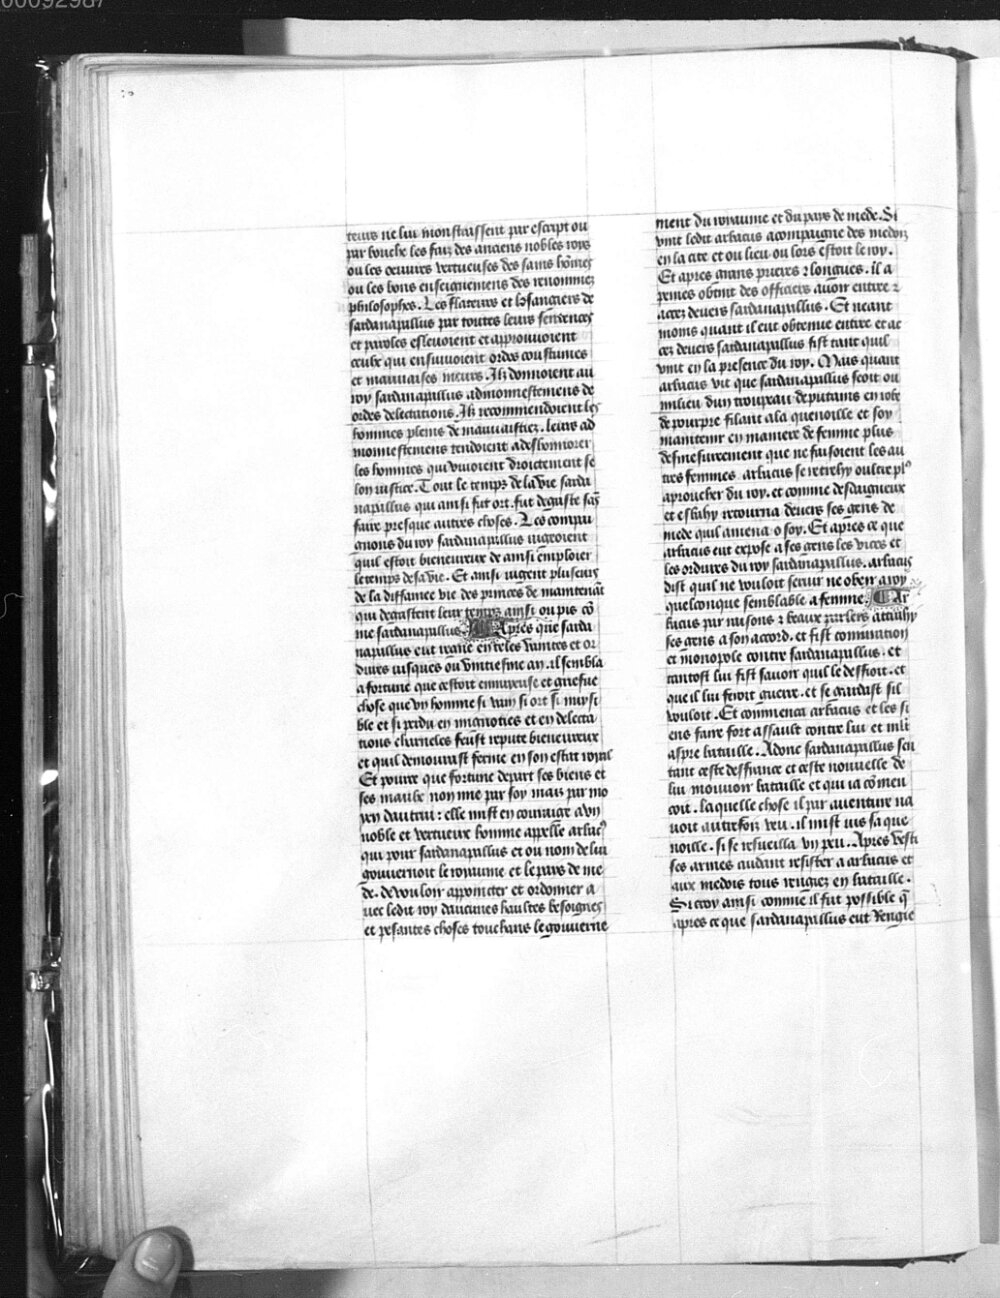 teurs ne lui monstrassent par escript ou
par bouche les faiz des anciens nobles roys
ou les oeuures vertueuses des sains hōmes
ou les bons enseignemens des renommez
philosophes. Les flateurs et losangiers de
sardanapallus par toutes leurs sentences
et paroles esleuoient et approuuoient
ceulx qui ensuiuoient ordes coustumes
et mauuaises meurs. Ilz donnoient au
roy sardanapallus admonnestemens de
ordes delectations. Ilz recommendoient les
hommes pleins de mauuaistiez. leurs ad
monnestemens tendoient a deshonnorer
les hommes qui viuoient droictement se
lon iustice. Tout le temps de la vie sarda
napallus qui ainsi fut ort. fut degaste sās
faire presque autres choses. Les compai
gnons du roy sardanapallus iugeoient
quil estoit bieneureux de ainsi emploier
le temps de sa vie. Et ainsi iugent pluseurs
de la diffamee vie des princes de maintenāt
qui degastent leur temps ainsi ou pis cō
me sardanapallus. Apres que sarda
napallus eut regne en teles vanites et or
dures iusques ou vintiesme an. il sembla
a fortune que cestoit ennuyeuse et griefue
chose que vn homme si vain si ort si nuysi
ble et si perdu en mignoties et en delecta
tions charneles feust repute bieneureux
et quil demourast ferme en son estat royal
Et pource que fortune depart ses biens et
ses maulx non mie par soy mais par mo
yen dautrui: elle mist en couraige a vn
noble et vertueux homme appelle arbac9
qui pour sardanapallus et ou nom de lui
gouuernoit le royaume et le pays de me
de. de vouloir appointer et ordonner a
uec ledit roy daucunes haultes besoignes
et pesantes choses touchans le gouuerne
ment du royaume et du pays de mede. Si
vint ledit arbacus acompaigne des medois
en la cite et ou lieu ou lors estoit le roy.
Et apres grans prieres ⁊ longues. il a
peines obtint des officiers auoir entree ⁊
acces deuers sardanapallus. Et neant
moins quant il eut obtenue entree et ac
ces deuers sardanapallus fist tant quil
vint en la presence du roy. Mais quant
arbacus vit que sardanapallus seoit ou
milieu dun troupeau de putains en robe
de pourpre filant a la quenoille et soy
maintenir en maniere de femme plus
desmesureement que ne faisoient les au
tres femmes arbacus se retrehy oultre pl9
aproucher du roy. et comme desdaigneux
et esbahy retourna deuers ses gens de
mede quil amena o soy. Et apres ce que
arbacus eut expose a ses gens les vices et
les ordures du roy sardanapallus. arbacus
dist quil ne vouloit seruir ne obeir a roy
quelconque semblable a femme. Ar
bacus par raisons ⁊ beaux parlers attrahy
ses gens a son accord. et fist coniuration
et monopole contre sardanapallus. et
tantost lui fist sauoir quil le deffioit. et
que il lui feroit guerre. et se gardast sil
vouloit. Et commenca arbacus et les si
ens faire fort assault contre lui et mlt
aspre bataille. Adonc sardanapallus sen
tant ceste deffiance et ceste nouuelle de
lui mouuoir bataille et qui ia cōmen
coit. laquelle chose il par auenture na
uoit autrefois veu. il mist ius sa que
noille. si se resueilla vn peu. Apres vesti
ses armes cuidant resister a arbacus et
aux medois tous rengiez en bataille.
Si croy ainsi comme il fut possible q̄
apres ce que sardanapallus eut rengie